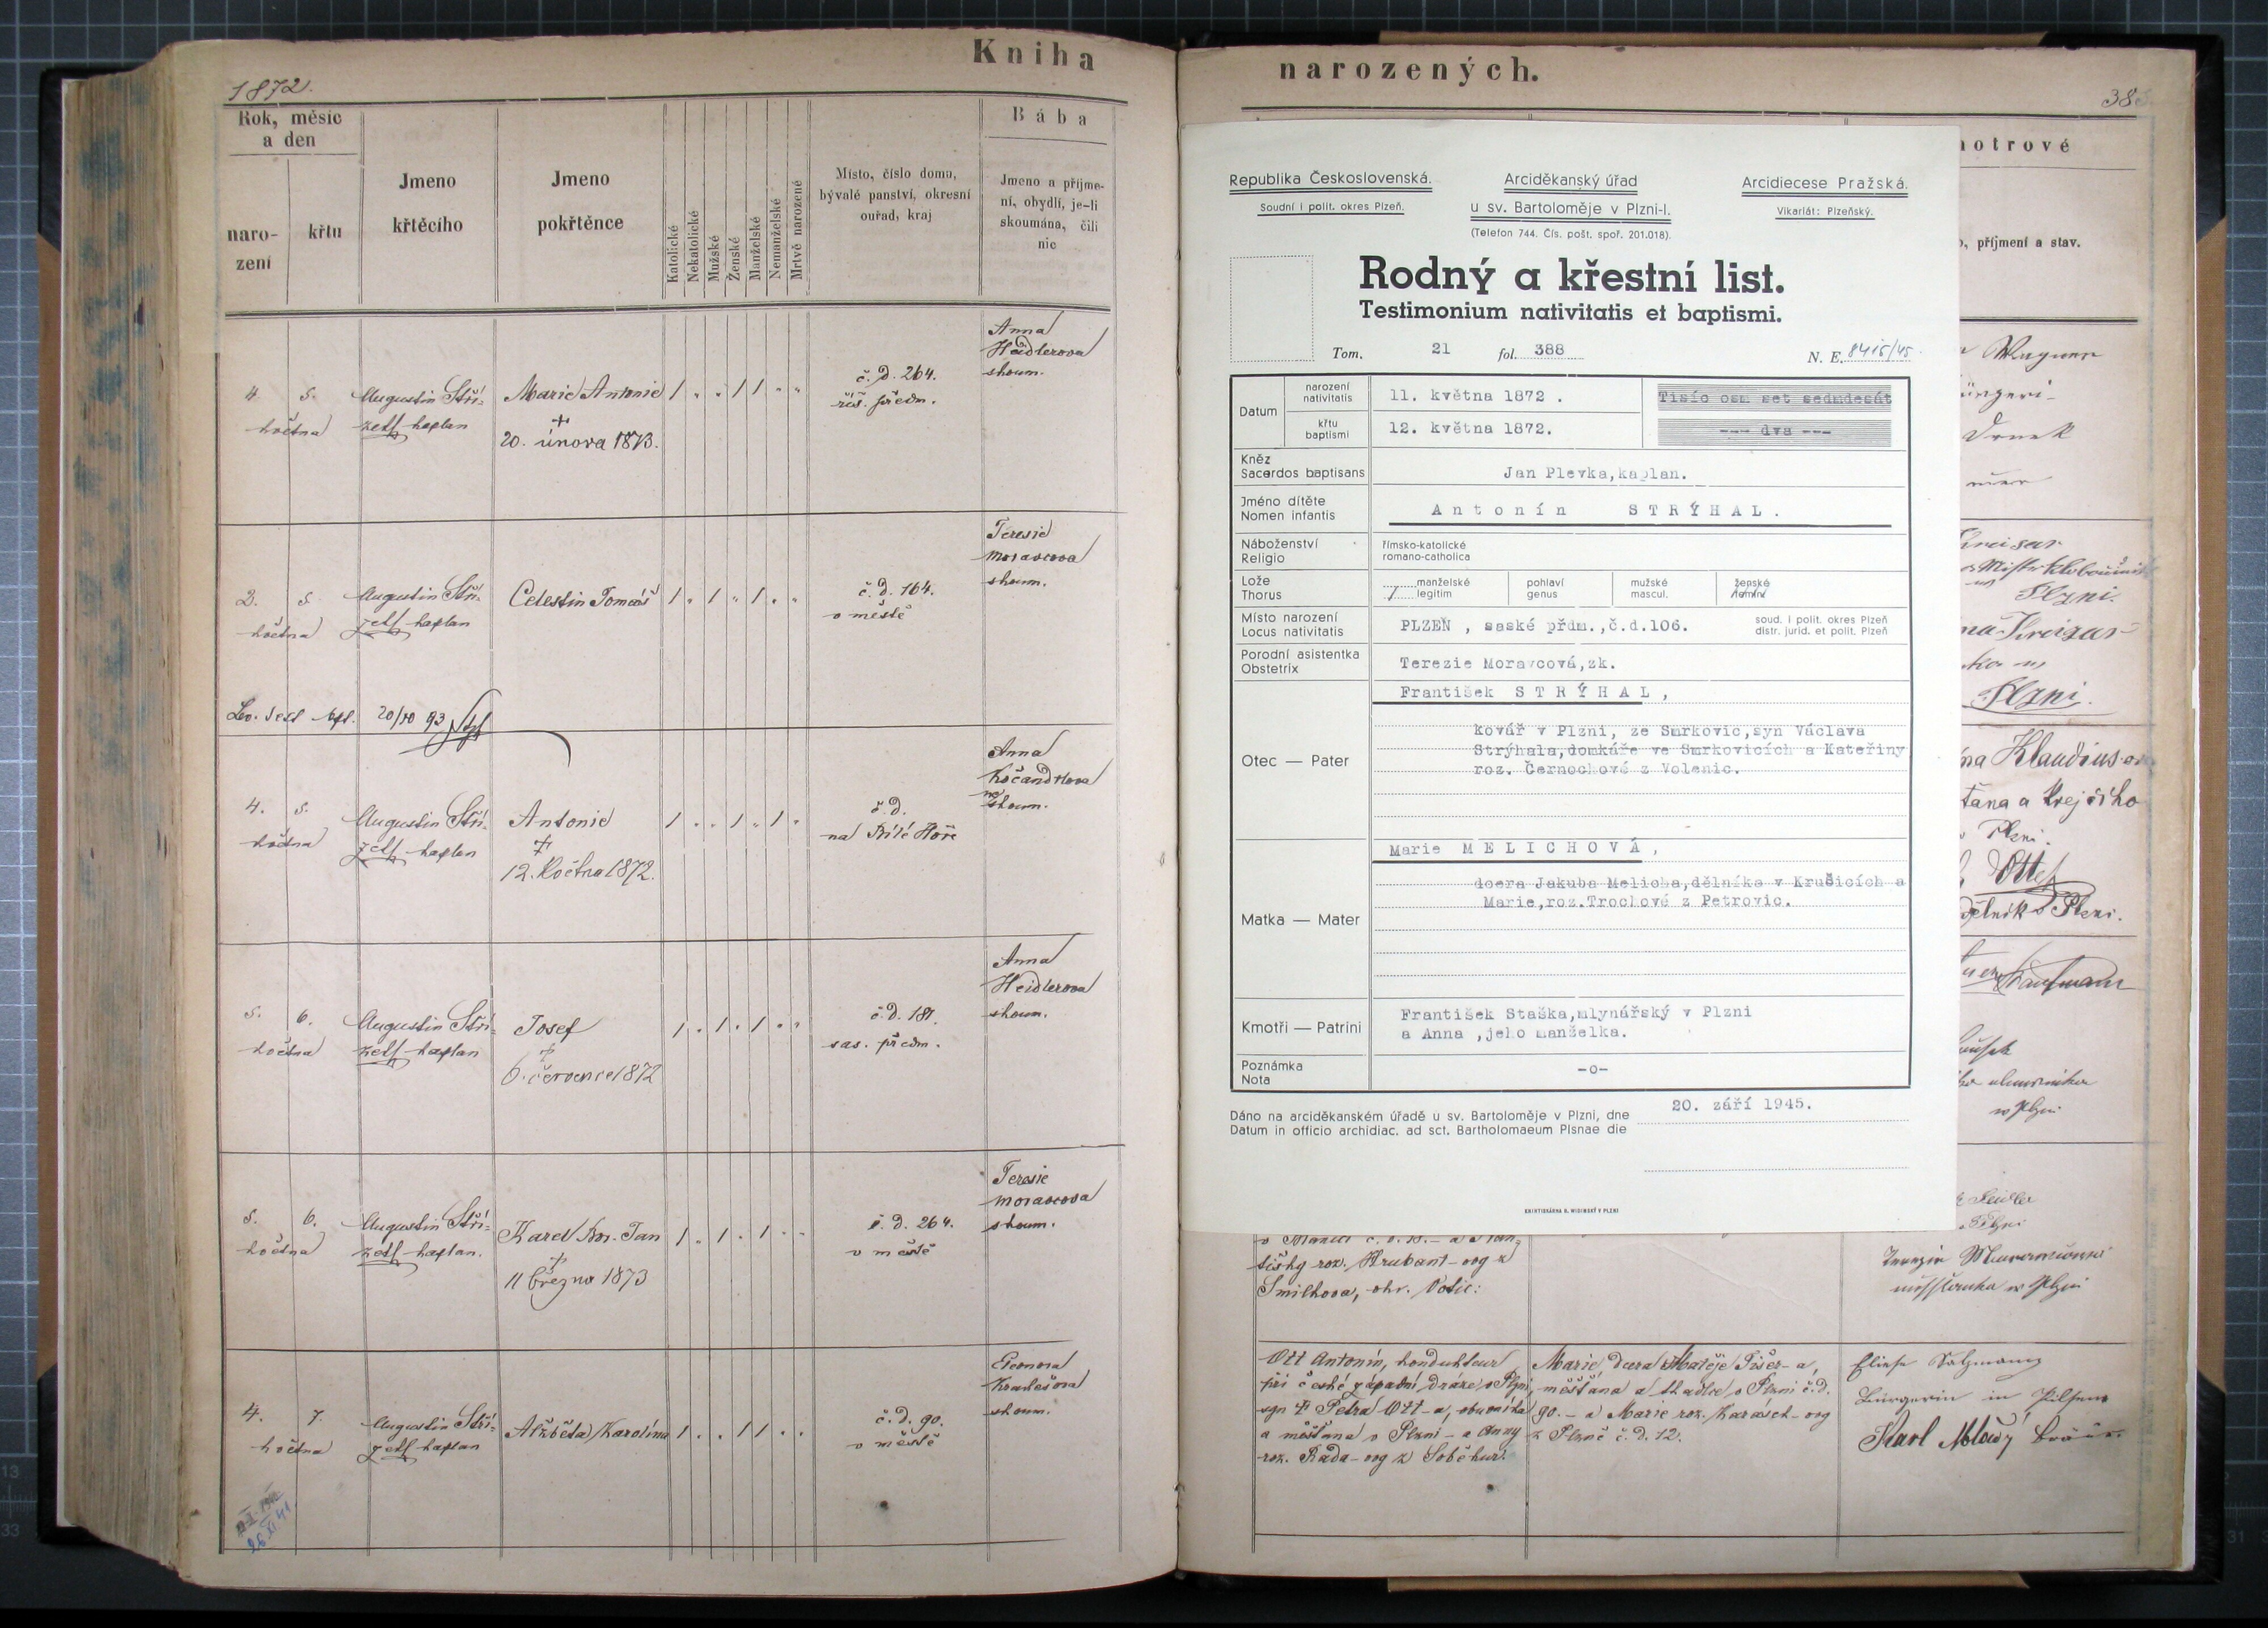 Kniha
1872.
Rok, měsíc
a den
naro-
zení
křtu
Jmeno
křtěcího
Jmeno
pokřtěnce
Katolické
Nekatolické
Mužské
Ženské
Manželské
Nemanželské
Mrtvě narozené
Místo, číslo domu,
bývalé panství, okresní
ouřad, kraj
Bába
Jmeno a příjme-
ní, obydlí, je-li
skoumána, čili
nic
4 5.
května
Augustin Stří-
zetl kaplan
Marie Antonie
+
20. února 1873.
č. d. 264.
říš. předm.
Anna
Heidlerova
skoum.
2. 5
května
Augustin Stří-
zetl kaplan
Celestin Tomáš
č. d. 164.
v městě
Teresie
Moravcova
skoum.
20/10 93
4. 5.
května
Augustin Stří-
zetl kaplan
Antonie
+
12. Května 1872.
č. d.
na Bílé Hoře
Anna
Kočandrlova
ne
skoum.
5. 6.
května
Augustin Stří-
zetl kaplan
Josef
+
6. července 1872
č. d. 181.
sas. předm.
Anna
Heidlerova
skoum.
5. 6.
května
Augustin Stří-
zetl kaplan.
Karel Jan
+
11 března 1873
č. d. 264.
v městě
Teresie
Moravcova
skoum.
4. 7.
května
Augustin Stří-
zetl kaplan
Alžběta Karolína
č. d. 90.
v městě
Eleonora
skoum.
26 XI 41
narozených.
38
otrové
příjmení a stav.
Republika Československá.
Soudní i polit. okres Plzeň.
Arciděkanský úřad
u sv. Bartoloměje v Plzni-I.
(Telefon 744. Čís. pošt. spoř. 201.018).
Arcidiecese Pražská.
Vikariát: Plzeňský.
Rodný a křestní list.
Testimonium nativitatis et baptismi.
Tom. 21 fol. 388 N. E. 8415/45.
Datum
narození
nativitatis
11. května 1872 .
Tisíc osm set sedmdesát
křtu
baptismi
12. května 1872.
--- dva ---
Kněz
Sacerdos baptisans
Jan Plevka,kaplan.
Jméno dítěte
Nomen infantis
Antonín STRÝHAL.
Náboženství
Religio
římsko-katolické
romano-catholica
Lože
Thorus
manželské
legitim
pohlaví
genus
mužské
mascul.
ženské
femin.
Místo narození
Locus nativitatis
PLZEŇ , saské přdm.,č.d.106.
soud. i polit. okres Plzeň
distr. jurid. et polit. Plzeň
Porodní asistentka
Obstetrix
Terezie Moravcová,zk.
Otec — Pater
František STRÝHAL,
kovář v Plzni, ze Smrkovic,syn Václava
Strýhala,domkáře ve Smrkovicích a Kateřiny
roz. Černochové z Volenic.
Matka — Mater
Marie MELICHOVÁ,
dcera Jakuba Melicha,dělníka v Krušicích a
Marie,roz.Trochové z Petrovic.
Kmotři — Patrini
František Staška,mlynářský v Plzni
a Anna ,jeho manželka.
Poznámka
Nota
-o-
Dáno na arciděkanském úřadě u sv. Bartoloměje v Plzni, dne
Datum in officio archidiac. ad sct. Bartholomaeum Plsnae die
20. září 1945.
KNIHTISKÁRNA V. WIDINSKÝ V PLZNI
Wagner
Plzni.
Plzni.
Klaudius
Krejčího
Plzni.
Ott
Plzni.
Kaufmann
v Plzni
tišky roz. Hrubant-ovy z
Smilkova, okr. Votic:
v Plzni
Ott Antonín, kondukteur
při české západní dráze v Plzni,
syn + Petra Ott-a, obuvníka
a měšťana v Plzni - a Anny
roz. Rada-ovy z Soběkur.
Marie, dcera Matěje Pišer-a,
měšťana a sládka v Plzni č.d.
90. - a Marie roz. Karásek-ovy
z Plzně č. d. 12.
Eliese Salzmann
Bürgerin in Pilsen
Karl